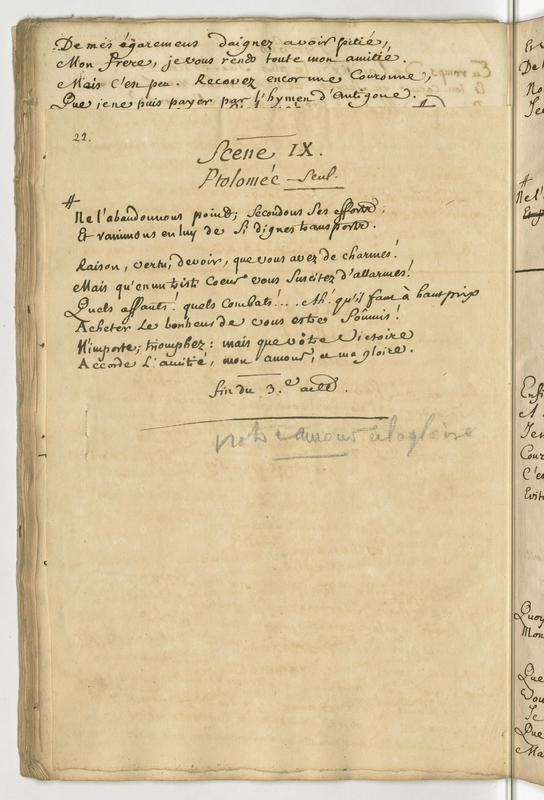 De mes égaremens daignez avoir pitié,
Mon frere, je vous rends toute mon amitié.
Mais c'est peu. Recevez encor une Couronne,
Que je ne puis payer par l'hymen d'Antigone.
22.
Scene IX.
Ptolomée Seul.
# Ne l'abandonnons point; secondons ses efforts;
Et ranimons en luy de si dignes transports.
Raison, vertu, devoir, que vous avez de charmes!
Mais qu'en un triste Coeur vous suscitez d'allarmes!
Quels assauts! quels Combats!... Ah! qu'il faut à haut prix
Acheter le bonheur de vous estre soumis!
N'importe; triomphez: mais que vôtre victoire
Accorde l'amitié, mon amour, et ma gloire.
fin du 3.e acte.
notre amour et la gloire
#
Ne l'
De
No
Je
Enfi
Je
Cour
C'es
Evit
Quoy
Mon
Que
Vou
Je
Que
Ma